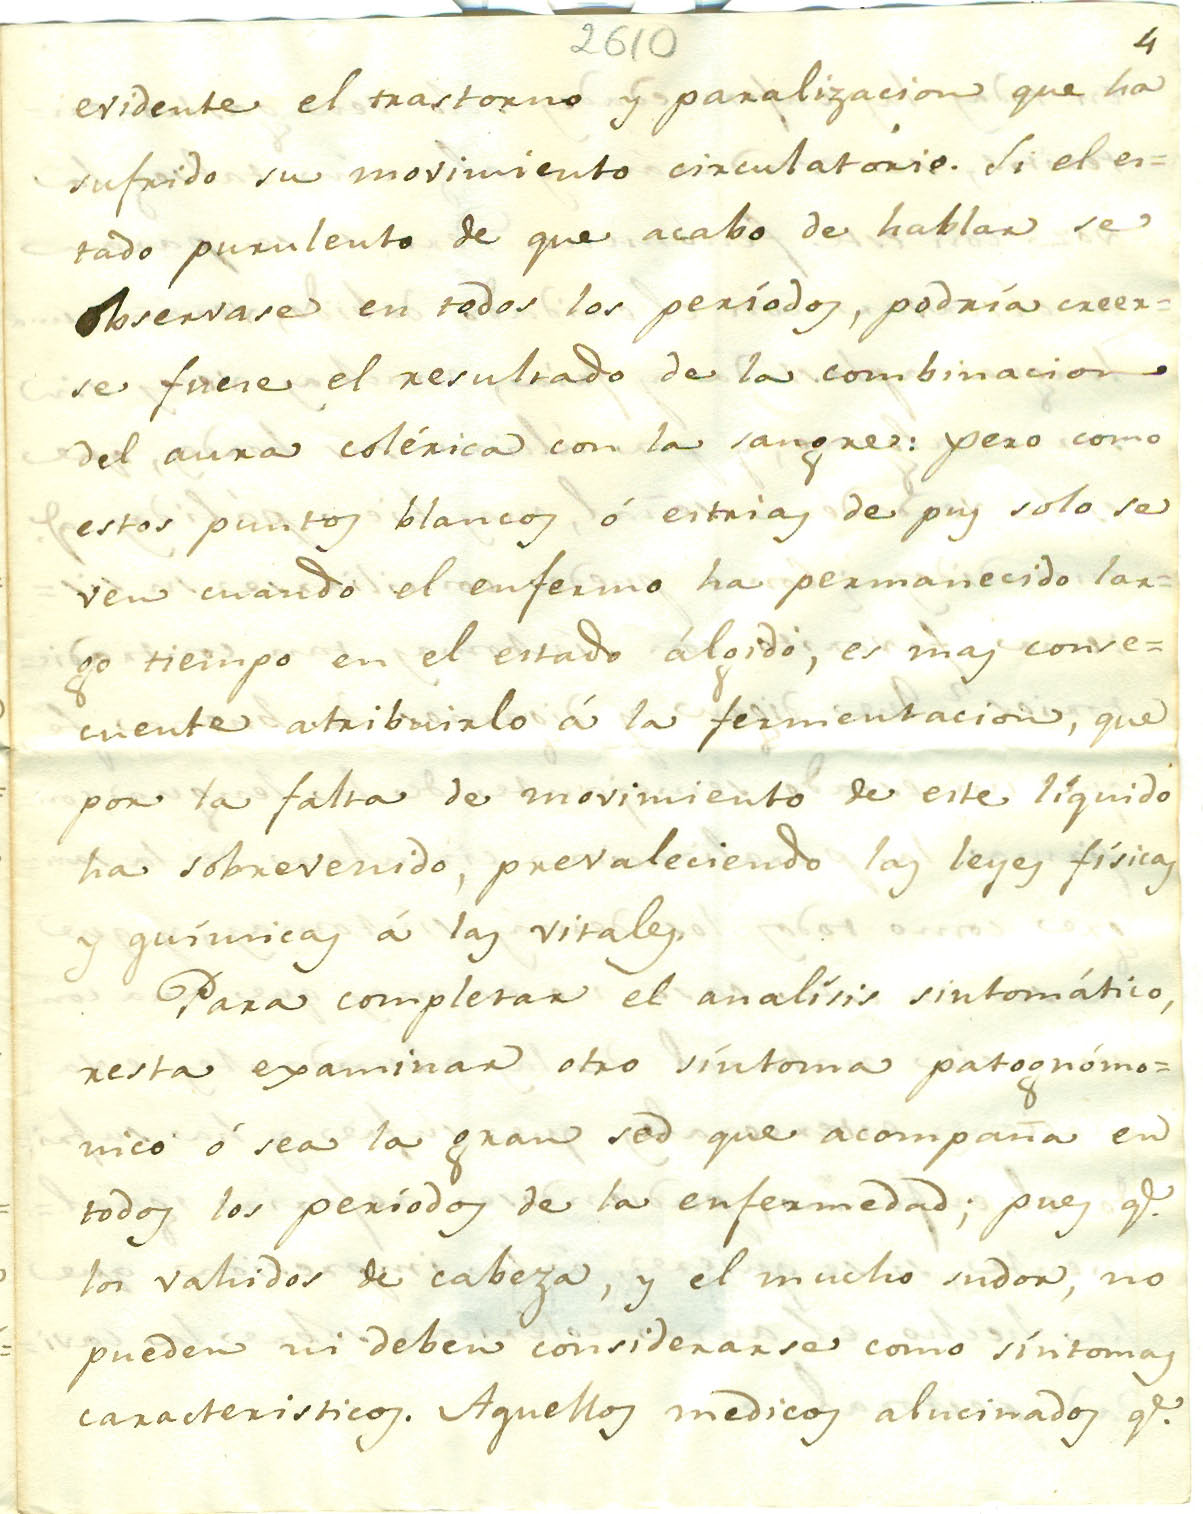 2610
4
evidente el trastorno y paralizacion que ha
sufrido su movimiento circulatório. Si el es=
tado purulento de que acabo de hablar se
observase en todos los períodos, podría creer=
se fuese el resultado de la combinacion
del aura colérica con la sangre: pero como
estos puntos blancos ó estrias de pus solo se
ven cuando el enfermo ha permanecido lar=
go tiempo en el estado álgido, es mas conse=
cuente atribuirlo á la fermentacion, que
por la falta de movimiento de este líquido
ha sobrevenido, prevaleciendo las leyes físicas
y químicas á las vitales.
Para completar el analísis sintomático,
resta examinar otro síntoma patognómo=
nico ó sea la gran sed que acompaña en
todos los períodos de la enfermedad; pues q.e
los vahidos de cabeza, y el mucho sudor, no
pueden ni deben considerarse como síntomas
caracteristicos. Aquellos medicos alucinados q.e